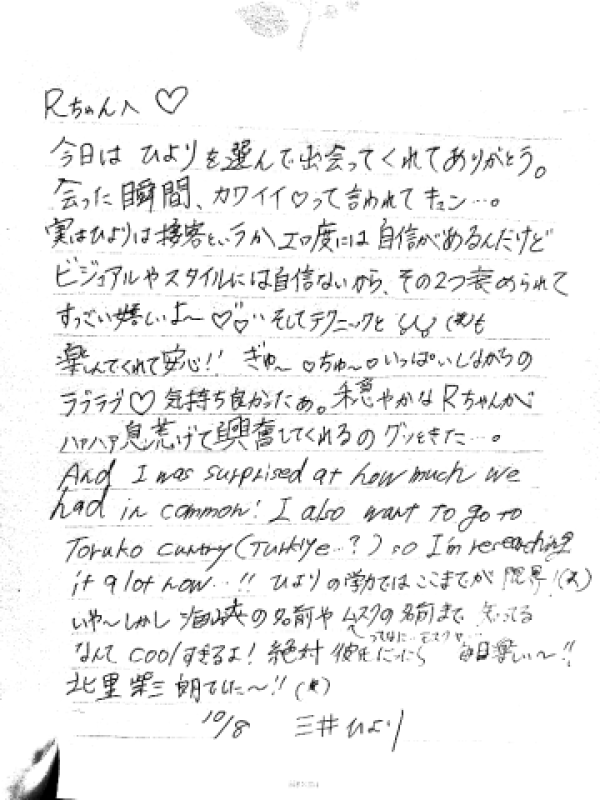 Rちゃんへ ♡
今日は ひよりを選んで出会ってくれてありがとう。
会った瞬間、カワイイ♡って言われて キュン…。
実はひよりは接客というか、エロ度には自信があるんだけど
ビジュアルやスタイルには自信ないから、その2つ褒められて
すっごい嬉しいよ〜♡ そしてテクニックと (笑)も
楽しんでくれて安心!! ぎゅ〜♡ちゅ〜♡いっぱいしながらの
ラブラブ♡ 気持ち良かったぁ。穏やかなRちゃんが
ハァハァ息荒げて興奮してくれるの グッときた…。
And I was surprised at how much we
had in common! I also want to go to
Toruko cuntry (Turkiye…?) so I'm researching
it a lot now…!! ひよりの学力ではここまでが 限界!(笑)
いや〜しかし 海峡の名前や ムスクの名前まで 知ってる
ってなに…モスク や…
なんて coolすぎるよ! 絶対 彼氏だったら 毎日楽しい〜!!
北里柴三朗でした〜!! (笑)
10/8 三井ひより